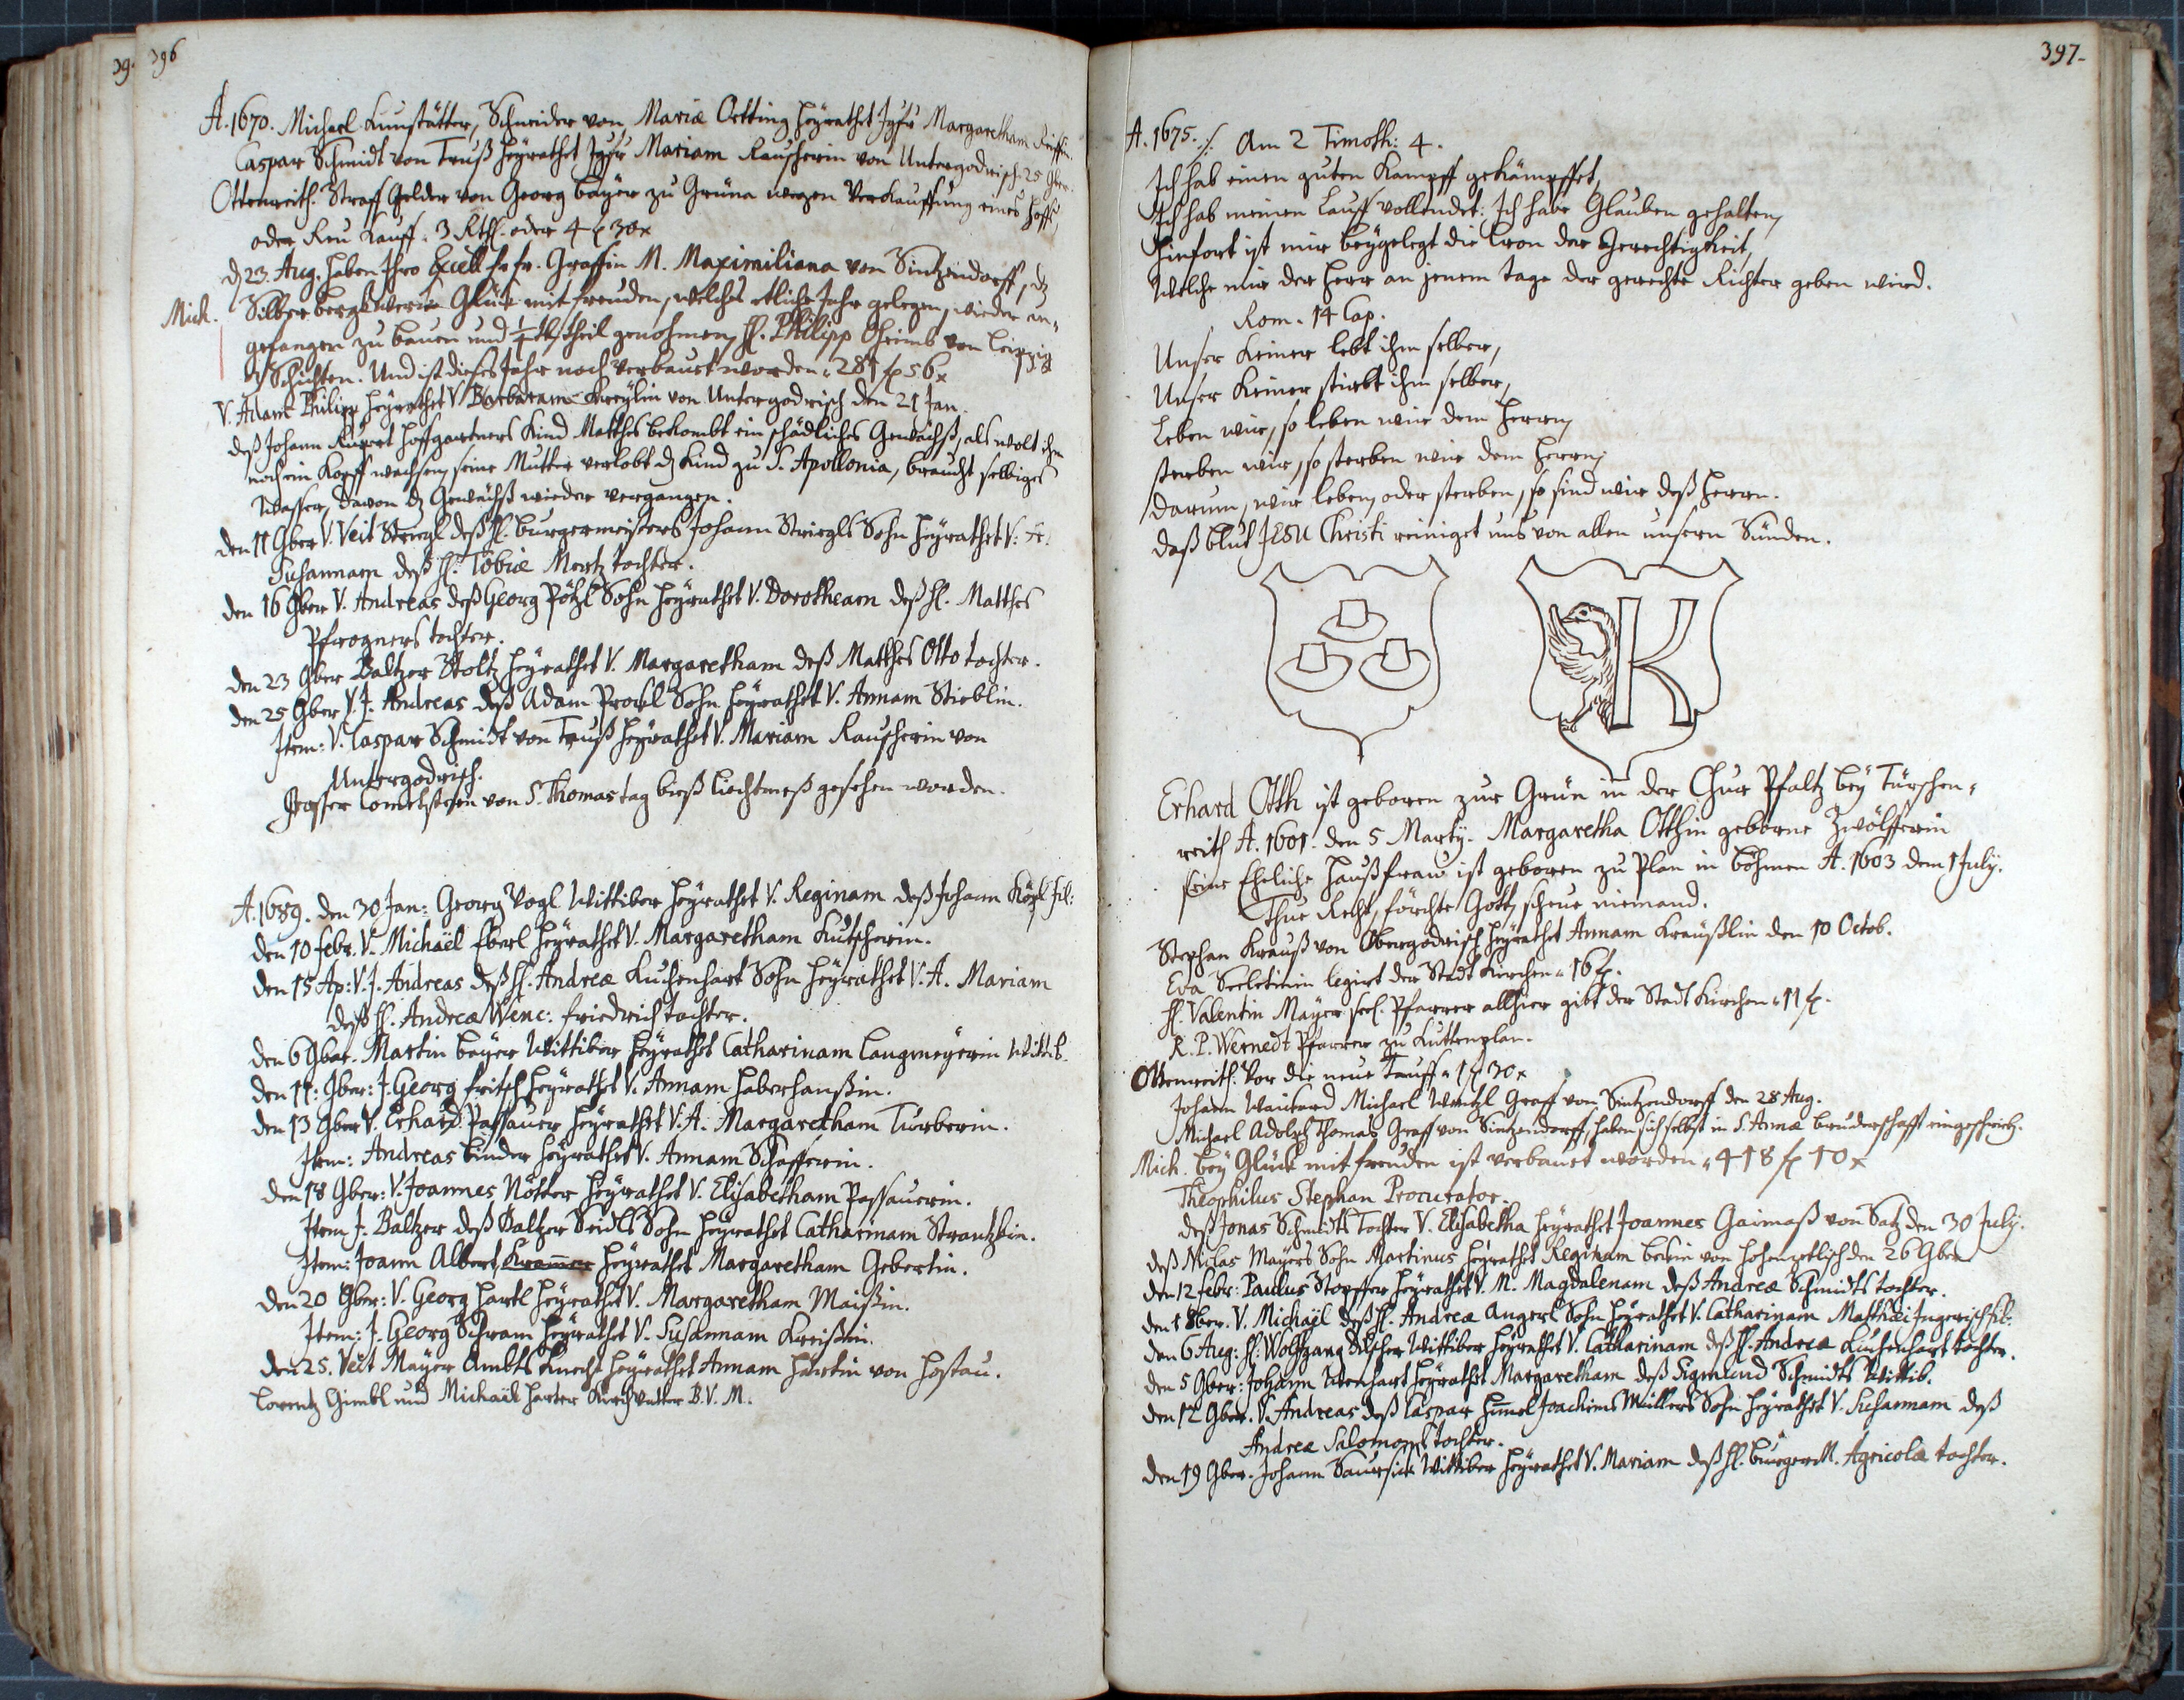 396
A. 1670. Michael Kunstätter, Schneider von Mariæ Oetting heyrathet Jgfr Margaretham
Caspar Schmidt von Truß heyrathet Jgfr Mariam Rauscherin von Untergodrisch. 25 9ber.
Ottenreith. Straff Gelder von Georg Bayer zu Grüna wegen Verkauffung eines Hoffs,
oder Reu Kauff. 3 Rthl. oder 4 f 30 x
d 23. Aug. haben Ihro Excell fr. fr. Graffin M. Maximiliana von Sintzendorff, dz
Mich. Silber bergkwerk Glück mit freuden, welches etliche Jahr gelegen, wieder an-
gefangen zu bauen und theil genohmen, H. Philipp Oheimb von Leipzig
Schichten. Und ist dieses Jahr noch verbauet worden. 281 f 56 x
V. Adam Philipp heyrathet V. Barbaram von Untergodrisch den 21 Jan.
deß Johann Hoffgartners Kind Matthes bekombt ein schädliches Gewächß, als wolt ihm
noch ein Kopff wachsen, seine Mutter verlobt dz Kind zu S. Apollonia, braucht selbiges
Wasser, davon dz Gewächß wieder vergangen.
den 11 9ber V. Veit Strigl deß H. burgermeisters Johann Strigls Sohn heyrathet V.
Susannam deß H. Tobiæ Mertz tochter.
den 16 9ber V. Andreas deß Georg Pötzl Sohn heyrathet V. Dorotheam deß H. Matthes
Pfrogners tochter.
den 23 9ber Baltzer Stoltz heyrathet V. Margaretham deß Matthes Otto tochter.
den 25 9ber V. J. Andreas deß Adam Prockl Sohn heyrathet V. Annam Stieblin.
Item: V. Caspar Schmidt von Truß heyrathet V. Mariam Rauscherin von
Untergodrisch.
Grosser Cometstern von S. Thomas tag bieß Liechtmeß gesehen worden.
A. 1689. den 30 Jan: Georg Vogl Wittiber heyrathet V. Reginam deß Johann fil:
den 10 febr. V. Michaël Eberl heyrathet V. Margaretham Kutscherin.
den 15 Ap: V. J. Andreas deß H. Andreæ Kuchenhart Sohn heyrathet V. A. Mariam
deß H. Andreæ Wenc: friedrich tochter.
den 6 9ber. Martin bayer Wittiber heyrathet Catharinam Langmeyerin Wittib.
den 11: 9ber: J. Georg fritsch heyrathet V. Annam Haberhanßin.
den 13 9ber V. Erhard Passauer heyrathet V. A. Margaretham Türberin.
Item: Andreas binder heyrathet V. Annam Schafferin.
den 18 9ber: V. Joannes Nötter heyrathet V. Elisabetham Passauerin.
Item J. Baltzer deß Baltzer Seidls Sohn heyrathet Catharinam
Item: Joann Albert Kramer heyrathet Margaretham Gebertin.
den 20 9ber: V. Georg Hartl heyrathet V. Margaretham Maißin.
Item: J. Georg Schram heyrathet V. Susannam Kreißin.
den 25. Veit Mayer Ambts Knecht heyrathet Annam Hartin von Hostau.
Lorentz Gimbl und Michaël Harter Kirchvatter B. V. M.
397.
A. 1675. Am 2 Timoth: 4.
Ich hab einen guten Kampff gekämpffet,
Ich hab meinen Lauff vollendet: Ich habe Glauben gehalten,
Hinfort ist mir beygelegt die Cron der Gerechtigkeit,
Welche mir der Herr an jenem tage der gerechte Richter geben wird.
Rom. 14 Cap.
Unser Keiner lebt ihm selber,
Unser Keiner stirbt ihm selber,
Leben wir, so leben wir dem Herrn,
sterben wir, so sterben wir dem Herrn,
Darum, wir leben, oder sterben, so sind wir deß Herrn.
Daß blut JESU Christi reiniget uns von allen unsern Sünden.
K
Erhard Otth ist geboren zur Grün in der Chur Pfaltz bey Türschen-
reith A. 1601. den 5 Martij. Margaretha Otthin geborne Zwölfferin
seine Eheliche Haußfrau ist geboren zu Plan in böhmen A. 1603 dem 1 July.
Thue Recht, förchte Gott, scheue niemand.
Stephan Krauß von Obergodrisch heyrathet Annam Kräußlin den 10 Octob.
Eva legirt der Stadt Kirchen. 16 f.
H. Valentin Mayer seel. Pfarrer allhier gibt der Stadt Kirchen. 11 f.
R. P. Wernedt Pfarrer zu Kuttenplan.
Ottenreith. Vor die neue Tauff. 1 f 30 x
Johann Weickard Michael Wentzl Graff von Sintzendorff den 28 Aug.
Michael Adolph Thomas Graff von Sintzendorff, haben sich selbst in S. Annæ bruderschafft eingeschrieb.
Mich. bey Glück mit freuden ist verbauet worden. 418 f 10 x
Theophilus Stephan Procurator.
deß Jonas Schmidts Tochter V. Elisabetha heyrathet Joannes Gaimaß von Satz den 30 July.
deß Niclas Mayers Sohn Martinus heyrathet Reginam von Hohenzetlisch den 26 9ber
den 12 febr: Paulus Stopffer heyrathet V. M. Magdalenam deß Andreæ Schmidts tochter.
den 1 8ber. V. Michaël deß H. Andreæ Angerl Sohn heyrathet V. Catharinam Matthæi fil:
den 6 Aug: H. Wolffgang Wittiber heyrathet V. Catharinam deß H. Andreæ Kuchenhart tochter.
den 5 9ber: Johann heyrathet Margaretham deß Sigmund Schmidts Wittib.
den 12 9ber. V. Andreas deß Caspar Joachims Müllers Sohn heyrathet V. Susannam deß
Andreæ Salomons tochter.
den 19 9ber. Johann Wittiber heyrathet V. Mariam deß H. burgerm. Agricolæ tochter.